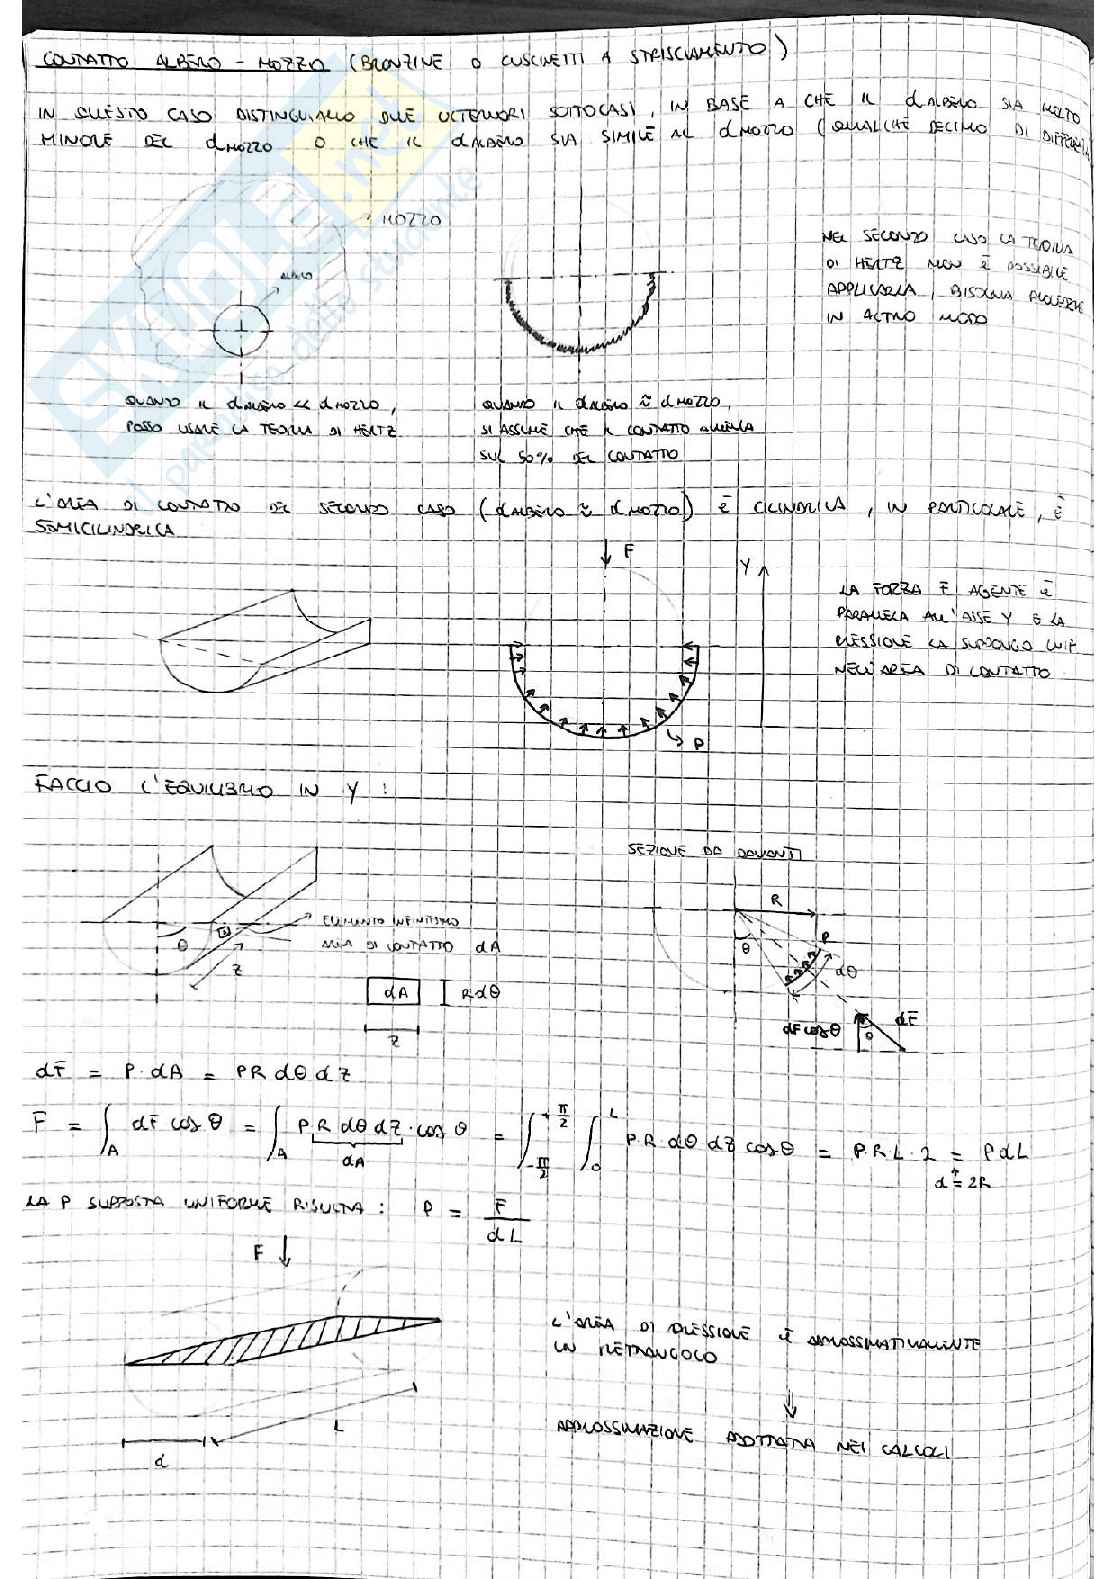 CONTATTO ALBERO - MOZZO (BRONZINE O CUSCINETTI A STRISCIAMENTO)
IN QUESTO CASO DISTINGUIAMO DUE ULTERIORI SOTTOCASI, IN BASE A CHE IL dALBERO SIA MOLTO
MINORE DEL dMOZZO O CHE IL dALBERO SIA SIMILE AL dMOZZO (QUALCHE DECIMO DI
MOZZO
ALBERO
NEL SECONDO CASO LA TEORIA
DI HERTZ NON È POSSIBILE
APPLICARLA, BISOGNA
IN ALTRO MODO
QUANDO IL dALBERO << dMOZZO,
POSSO USARE LA TEORIA DI HERTZ
QUANDO IL dALBERO ≈ dMOZZO,
SI ASSUME CHE IL CONTATTO AVVENGA
SUL 50% DEL CONTATTO
L'AREA DI CONTATTO DEL SECONDO CASO (dALBERO ≈ dMOZZO) È CILINDRICA, IN PARTICOLARE, È
SEMICILINDRICA
F
Y
P
LA FORZA F AGENTE È
PARALLELA ALL'ASSE Y E LA
PRESSIONE LA SUPPONGO UNIF
NELL'AREA DI CONTATTO
FACCIO L'EQUILIBRIO IN Y :
SEZIONE DA DAVANTI
ELEMENTO INFINITESIMO
AREA DI CONTATTO dA
θ
z
dA
R dθ
z
R
θ
P
dθ
dF cosθ
dF
θ
dF = P·dA = PR dθ dz
F = ∫A dF cosθ = ∫A P·R dθ dz·cosθ = ∫-π/2 +π/2 ∫0 L P·R·dθ dz cosθ = P·R·L·2 = PdL
dA
d=2R
LA P SUPPOSTA UNIFORME RISULTA : P = F / dL
F
L'AREA DI PRESSIONE È APPROSSIMATIVAMENTE
UN RETTANGOLO
APPROSSIMAZIONE ADOTTATA NEI CALCOLI
L
d